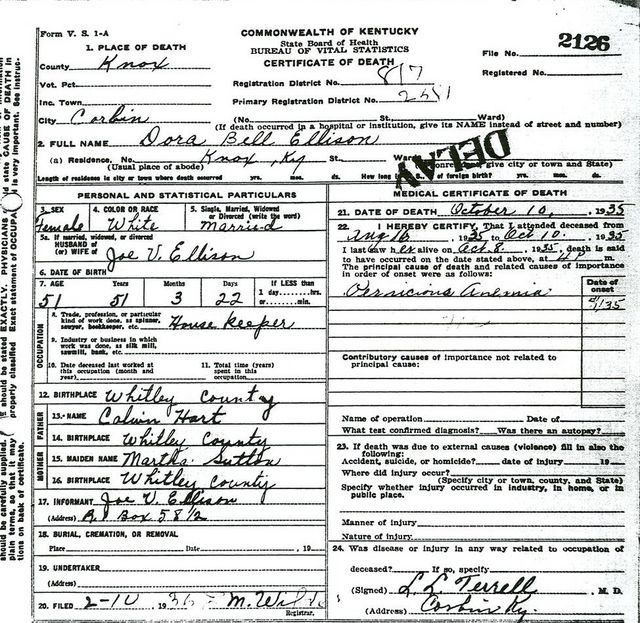 Form V. S. 1-A
COMMONWEALTH OF KENTUCKY
State Board of Health
BUREAU OF VITAL STATISTICS
CERTIFICATE OF DEATH
File No. 2126
Registered No.
1. PLACE OF DEATH
County Knox
Vot. Pct.
Inc. Town
City Corbin
Registration District No. 817
Primary Registration District No.
(No. St. Ward)
(If death occurred in a hospital or institution, give its NAME instead of street and number)
2. FULL NAME Dora Bell Ellison
(a) Residence. No. Knox, Ky St. Ward
(Usual place of abode) give city or town and State)
DELAY
Length of residence in city or town where death occurred yrs. mos. ds. How long of foreign birth? yrs. mos. ds.
PERSONAL AND STATISTICAL PARTICULARS
3. SEX Female
4. COLOR OR RACE White
5. Single, Married, Widowed or Divorced (write the word) Married
5a. If married, widowed, or divorced
HUSBAND of
(or) WIFE of Joe V. Ellison
6. DATE OF BIRTH
7. AGE Years Months Days If LESS than
51 51 3 22 1 day hrs. or min.
OCCUPATION
8. Trade, profession, or particular kind of work done, as spinner, sawyer, bookkeeper, etc. House Keeper
9. Industry or business in which work was done, as silk mill, sawmill, bank, etc.
10. Date deceased last worked at this occupation (month and year)
11. Total time (years) spent in this occupation
12. BIRTHPLACE Whitley County
FATHER
13. NAME Calvin Hart
14. BIRTHPLACE Whitley County
MOTHER
15. MAIDEN NAME Martha Sutton
16. BIRTHPLACE Whitley County
17. INFORMANT Joe V. Ellison
(Address) R 1 Box 58 1/2
18. BURIAL, CREMATION, OR REMOVAL
Place Date , 19
19. UNDERTAKER
(Address)
20. FILED 2-10 1936 M. Registrar.
MEDICAL CERTIFICATE OF DEATH
21. DATE OF DEATH October 10, 1935
22. I HEREBY CERTIFY, That I attended deceased from
Aug 10 1935 to Oct 10. 1935
I last saw her alive on Oct. 8. 1935, death is said
to have occurred on the date stated above, at 4P m.
The principal cause of death and related causes of importance
in order of onset were as follows:
Date of onset
Pernicious Anemia
Contributory causes of importance not related to
principal cause:
Name of operation Date of
What test confirmed diagnosis? Was there an autopsy?
23. If death was due to external causes (violence) fill in also the
following:
Accident, suicide, or homicide? date of injury 19
Where did injury occur?
(Specify city or town, county, and State)
Specify whether injury occurred in industry, in home, or in
public place.
Manner of injury
Nature of injury
24. Was disease or injury in any way related to occupation of
deceased? If so, specify
(Signed) L. L. Terrell M. D.
(Address) Corbin Ky.